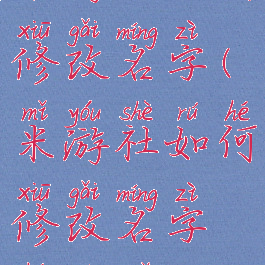 xiū gǎi míng zì
修改名字(
mǐ yóu shè rú hé
米游社如何
xiū gǎi míng zì
修改名字